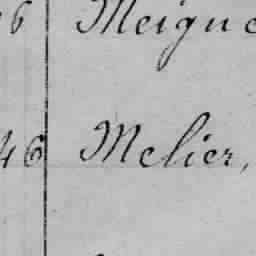 6 Meigne
46 Melier,